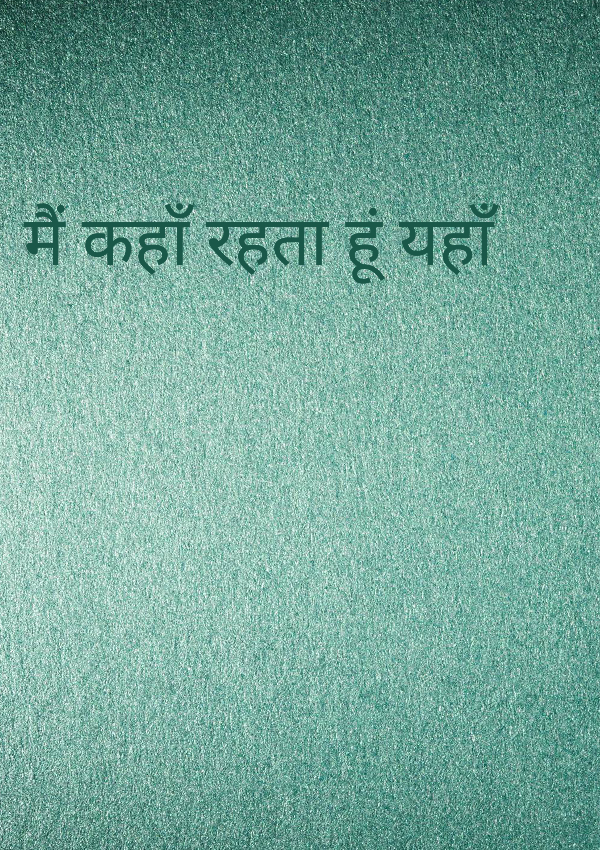 मैं कहाँ रहता हूं यहाँ